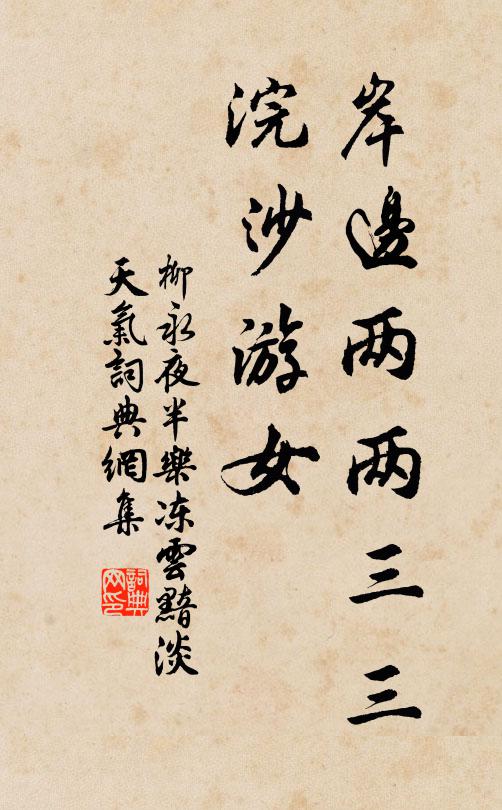 岸邊两两三三
浣沙游女
柳永夜半樂冻雲黯淡
天氣詞典網集
詞典网印